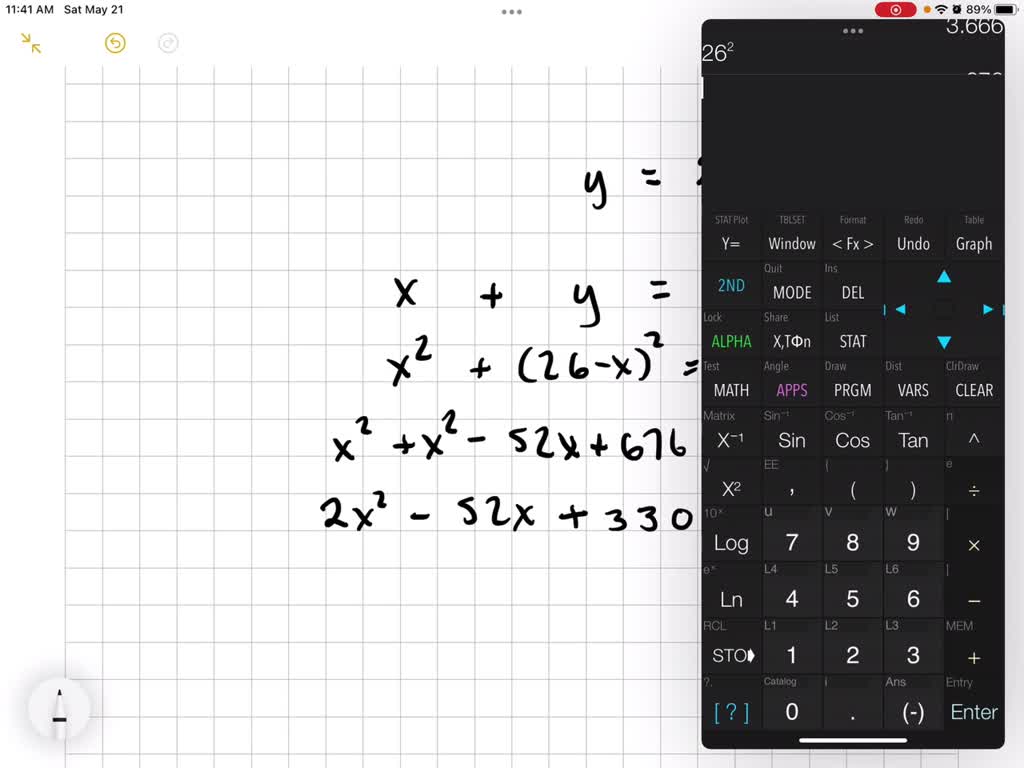 11:41 AM Sat May 21
89%
y =
x + y =
x² + (26-x)² =
x² + x² - 52x + 676
2x² - 52x + 330
3.666
26²
STAT Plot TBLSET Format Redo Table
Y= Window < Fx > Undo Graph
Quit Ins
2ND MODE DEL
Lock Share List
ALPHA X,TΦn STAT
Test Angle Draw Dist ClrDraw
MATH APPS PRGM VARS CLEAR
Matrix Sin⁻¹ Cos⁻¹ Tan⁻¹ π
X⁻¹ Sin Cos Tan ^
√ EE { } e
X² , ( ) ÷
10ˣ u v w
Log 7 8 9 ×
eˣ L4 L5 L6
Ln 4 5 6 −
RCL L1 L2 L3 MEM
STO 1 2 3 +
?. Catalog i Ans Entry
[ ? ] 0 . (-) Enter